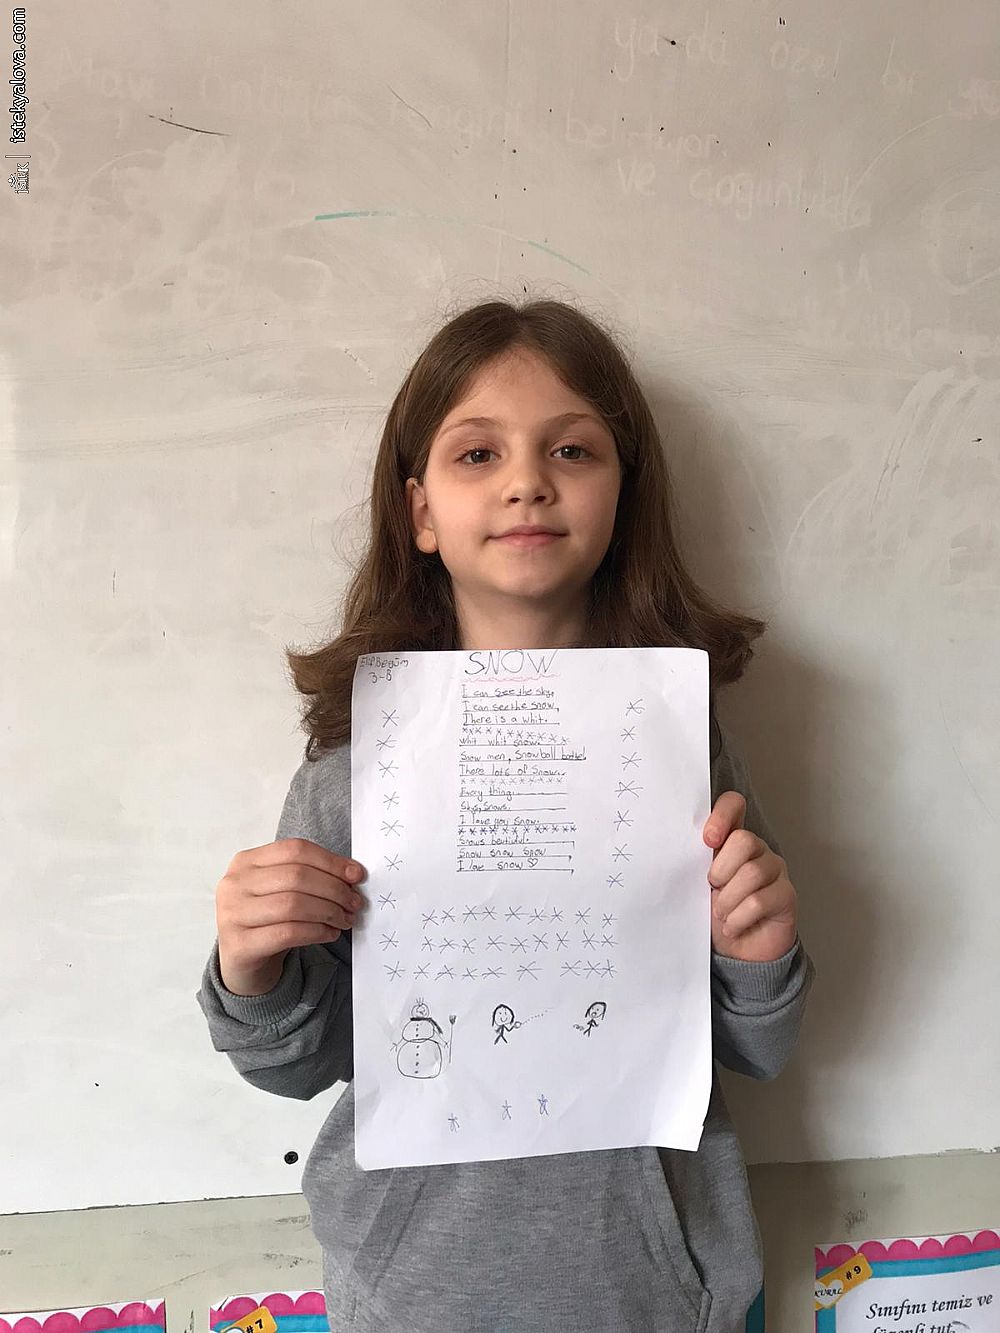 istekyalova.com
iSTEK
ya da özel bir
belirtiyor
ve çoğunlukla
Elif Begüm
3-B
SNOW
I can see the sky,
I can see the snow,
There is a whit.
whit whit snow.
Snow men, snowball battel,
There lots of snow..
Every thing..
Sky, Snows.
I love you snow.
Snows beutiful.
Snow snow snow,
I love snow ♡,
#7
KURAL
#9
Sınıfını temiz ve
düzenli tut.